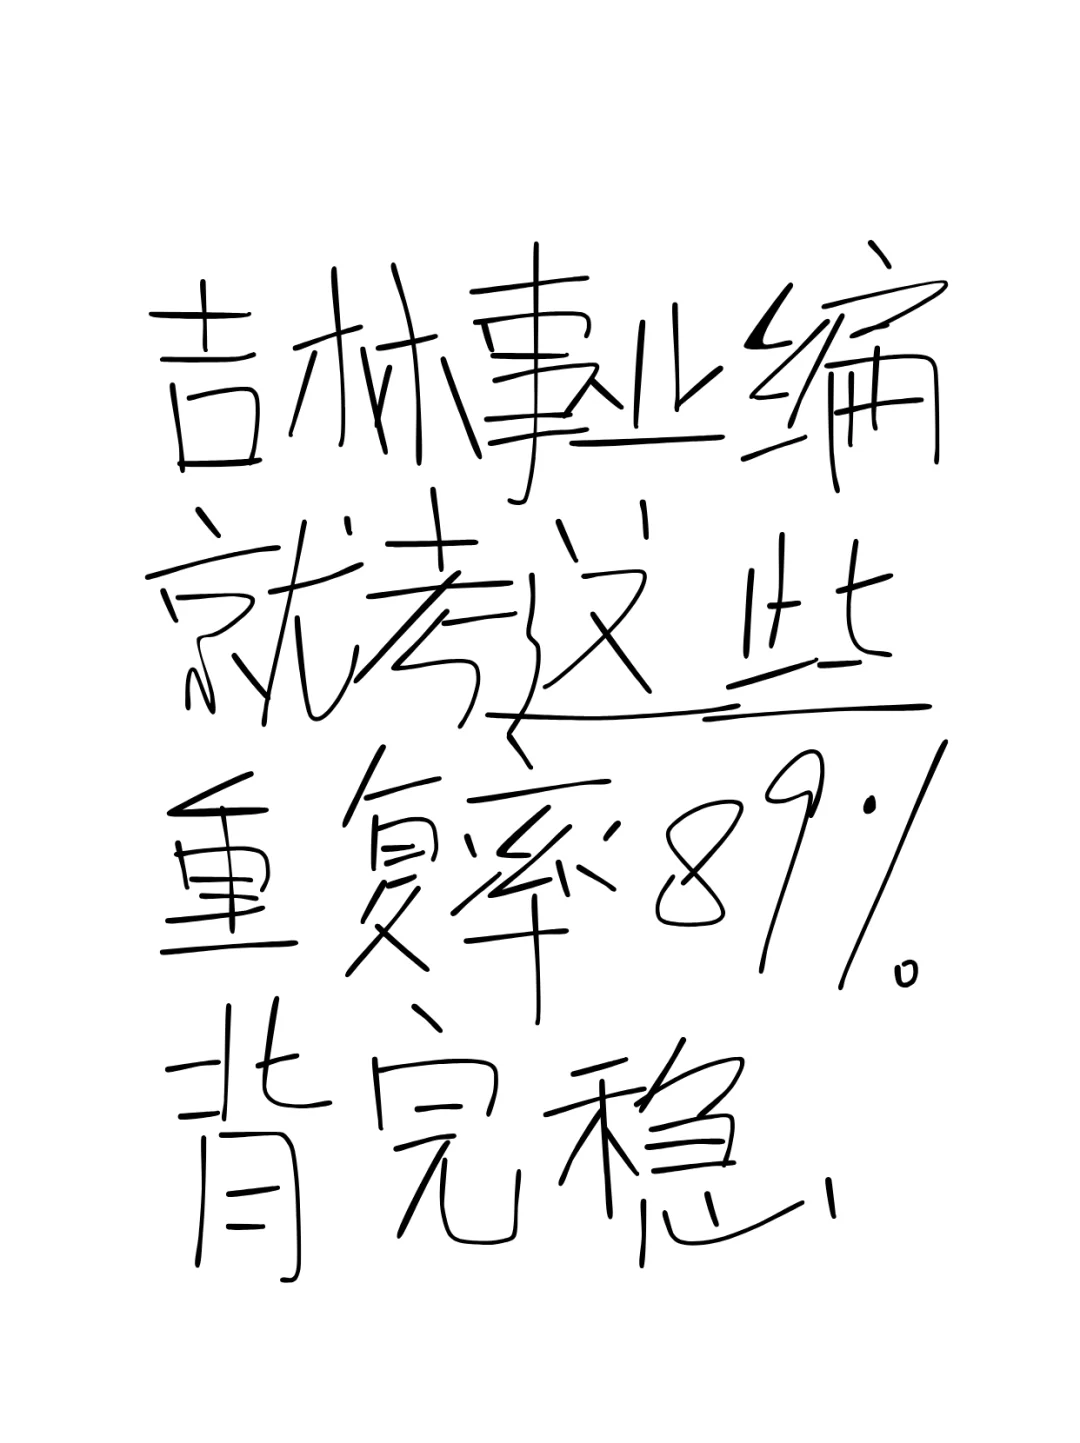 吉林事业编
就考这些
重复率89%
背完稳